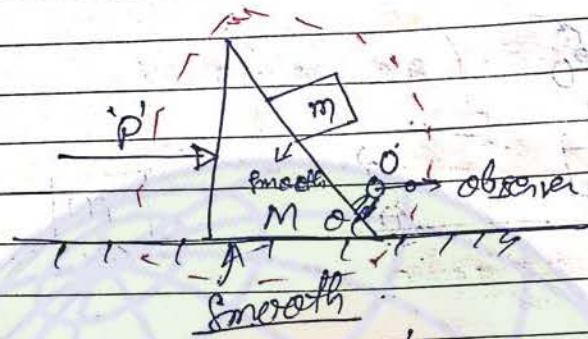 m
'P'
O
Smooth
observer
M
θ
A
Smooth